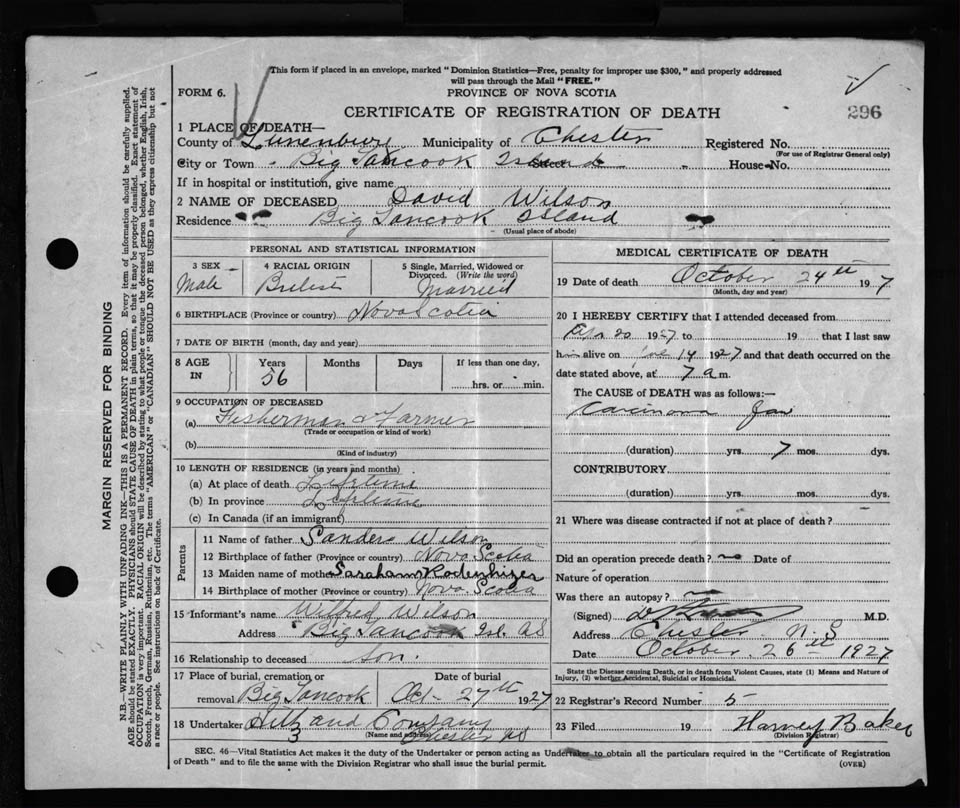 This form if placed in an envelope, marked "Dominion Statistics—Free, penalty for improper use $300," and properly addressed
will pass through the Mail "FREE."
FORM 6.
PROVINCE OF NOVA SCOTIA
CERTIFICATE OF REGISTRATION OF DEATH
296
1 PLACE OF DEATH—
County of Lunenburg Municipality of Chester Registered No.
(For use of Registrar General only)
City or Town Big Tancook Island House No.
If in hospital or institution, give name
2 NAME OF DECEASED David Wilson
Residence Big Tancook Island
(Usual place of abode)
PERSONAL AND STATISTICAL INFORMATION
3 SEX
Male
4 RACIAL ORIGIN
5 Single, Married, Widowed or Divorced. (Write the word)
Married
6 BIRTHPLACE (Province or country) Nova Scotia
7 DATE OF BIRTH (month, day and year)
8 AGE IN
Years
56
Months
Days
If less than one day,
hrs. or min.
9 OCCUPATION OF DECEASED
(a) Fisherman & Farmer
(Trade or occupation or kind of work)
(b)
(Kind of industry)
10 LENGTH OF RESIDENCE (in years and months)
(a) At place of death Lifetime
(b) In province Lifetime
(c) In Canada (if an immigrant)
Parents
11 Name of father Sanders Wilson
12 Birthplace of father (Province or country) Nova Scotia
13 Maiden name of mother
14 Birthplace of mother (Province or country) Nova Scotia
15 Informant's name Wilfred Wilson
Address Big Tancook Isl. NS
16 Relationship to deceased son.
17 Place of burial, cremation, or removal Big Tancook
Date of burial
Oct 27th 1927
18 Undertaker and Company
(Name and address) Chester NS
3
MEDICAL CERTIFICATE OF DEATH
19 Date of death October 24th 1927
(Month, day and year)
20 I HEREBY CERTIFY that I attended deceased from
20 1927 to 19 that I last saw
him alive on 14 1927 and that death occurred on the
date stated above, at 7 a m.
The CAUSE of DEATH was as follows:—
Carcinoma Jaw
(duration) yrs. 7 mos. dys.
CONTRIBUTORY
(duration) yrs. mos. dys.
21 Where was disease contracted if not at place of death?
Did an operation precede death? no Date of
Nature of operation
Was there an autopsy?
(Signed) M.D.
Address Chester N. S
Date October 26th 1927
State the Disease causing Death, or in death from Violent Causes, state (1) Means and Nature of
Injury, (2) whether Accidental, Suicidal or Homicidal.
22 Registrar's Record Number 5
23 Filed 19 Harvey Baker
(Division Registrar)
SEC. 46—Vital Statistics Act makes it the duty of the Undertaker or person acting as Undertaker to obtain all the particulars required in the "Certificate of Registration
of Death" and to file the same with the Division Registrar who shall issue the burial permit.
(OVER)
MARGIN RESERVED FOR BINDING
N.B.—WRITE PLAINLY WITH UNFADING INK—THIS IS A PERMANENT RECORD. Every item of information should be carefully supplied.
AGE should be stated EXACTLY. PHYSICIANS should STATE CAUSE OF DEATH in plain terms, so that it may be properly classified. Exact statement of
OCCUPATION is very important. RACIAL ORIGIN will be described by stating to what people or tongue the deceased person belonged, whether English, Irish,
Scotch, French, German, Russian, Ruthenian, etc. The terms "AMERICAN" or "CANADIAN" SHOULD NOT BE USED as they express citizenship but not
a race or people. See instructions on back of Certificate.